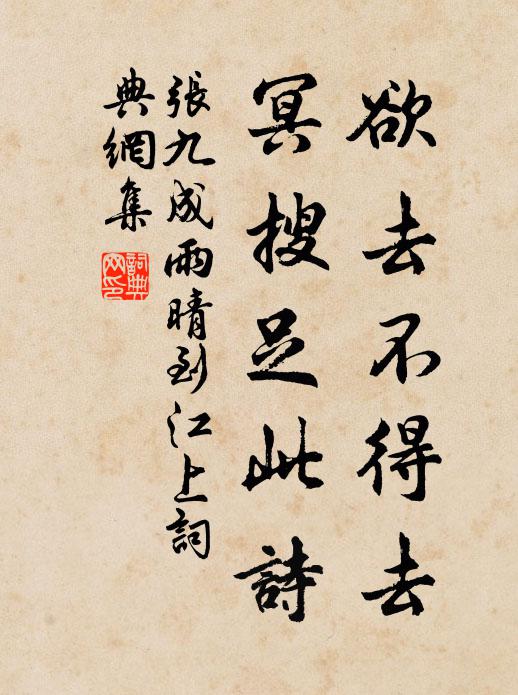 欲去不得去
冥搜足此詩
張九成雨晴到江上詞
典網集
詞典网印